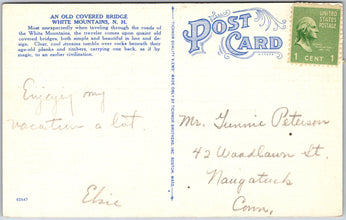 AN OLD COVERED BRIDGE
WHITE MOUNTAINS, N. H.
Most unexpectedly when traveling through the roads of
the White Mountains, the traveler comes upon quaint old
covered bridges, both simple and beautiful in line and de-
sign. Clear, cool streams tumble over rocks beneath their
age-old planks and timbers, carrying one back, as if by
magic, to an earlier civilization.
POST
CARD
UNITED STATES POSTAGE
1 CENT 1
Enjoying my
vacation a lot.
Elsie
Mr. Gunnie Peterson
42 Woodlawn St.
Naugatuck
Conn.